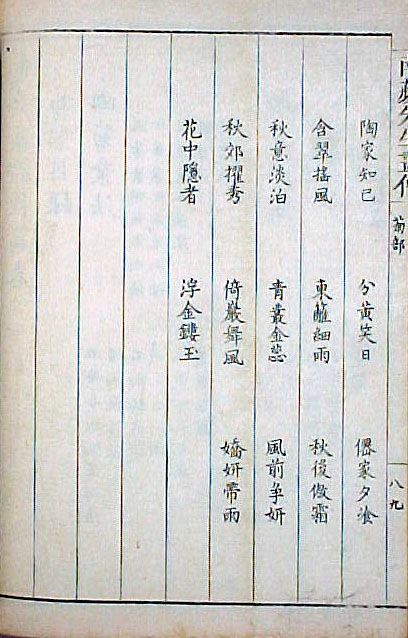 菊部
八九
陶家知己 分黃笑日 僊家夕飱
含翠搖風 東籬細雨 秋後傲霜
秋意淡泊 青叢金蕊 風前争妍
秋郊擢秀 倚巖舞風 嬌妍帶雨
花中隱者 浮金鏤玉